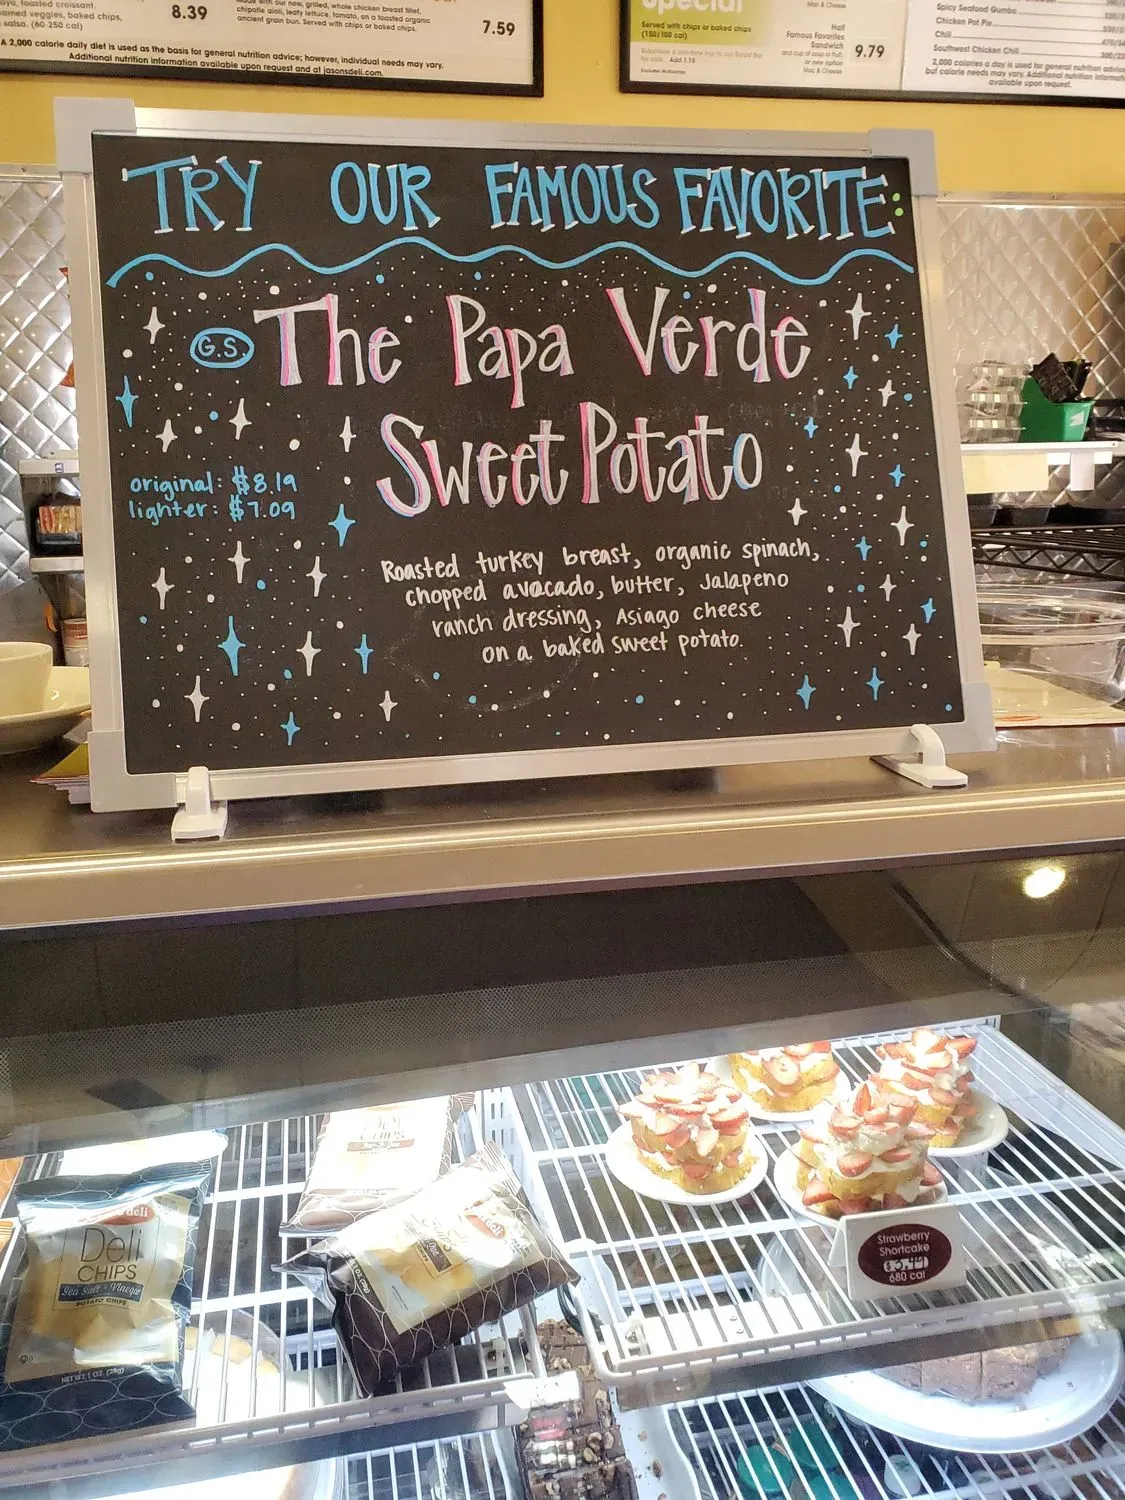 amed veggies, baked chips,
salsa. (60-250 cal)
8.39
with our new, grilled, whole chicken breast fillet,
chipotle aioli, leafy lettuce, tomato, on a toasted organic
ancient grain bun. Served with chips or baked chips.
7.59
A 2,000 calorie daily diet is used as the basis for general nutrition advice; however, individual needs may vary.
Additional nutrition information available upon request and at jasonsdeli.com.
Special
Served with chips or baked chips
(150/100 cal)
Mac & Cheese
Half
Famous Favorites
Sandwich
and cup of soup or fruit,
or new option
Mac & Cheese
9.79
Spicy Seafood Gumbo
Chicken Pot Pie
Chili
Southwest Chicken Chili
2,000 calories a day is used for general nutrition advice
but calorie needs may vary. Additional nutrition informat
available upon request.
TRY OUR FAMOUS FAVORITE:
G.S. The Papa Verde
Sweet Potato
original: $8.19
lighter: $7.09
Roasted turkey breast, organic spinach,
chopped avocado, butter, Jalapeno
ranch dressing, Asiago cheese
on a baked sweet potato.
deli
Deli
CHIPS
Sea Salt & Vinegar
POTATO CHIPS
NET WT. 1 OZ. (28g)
CHIPS
deli
Strawberry
Shortcake
680 cal